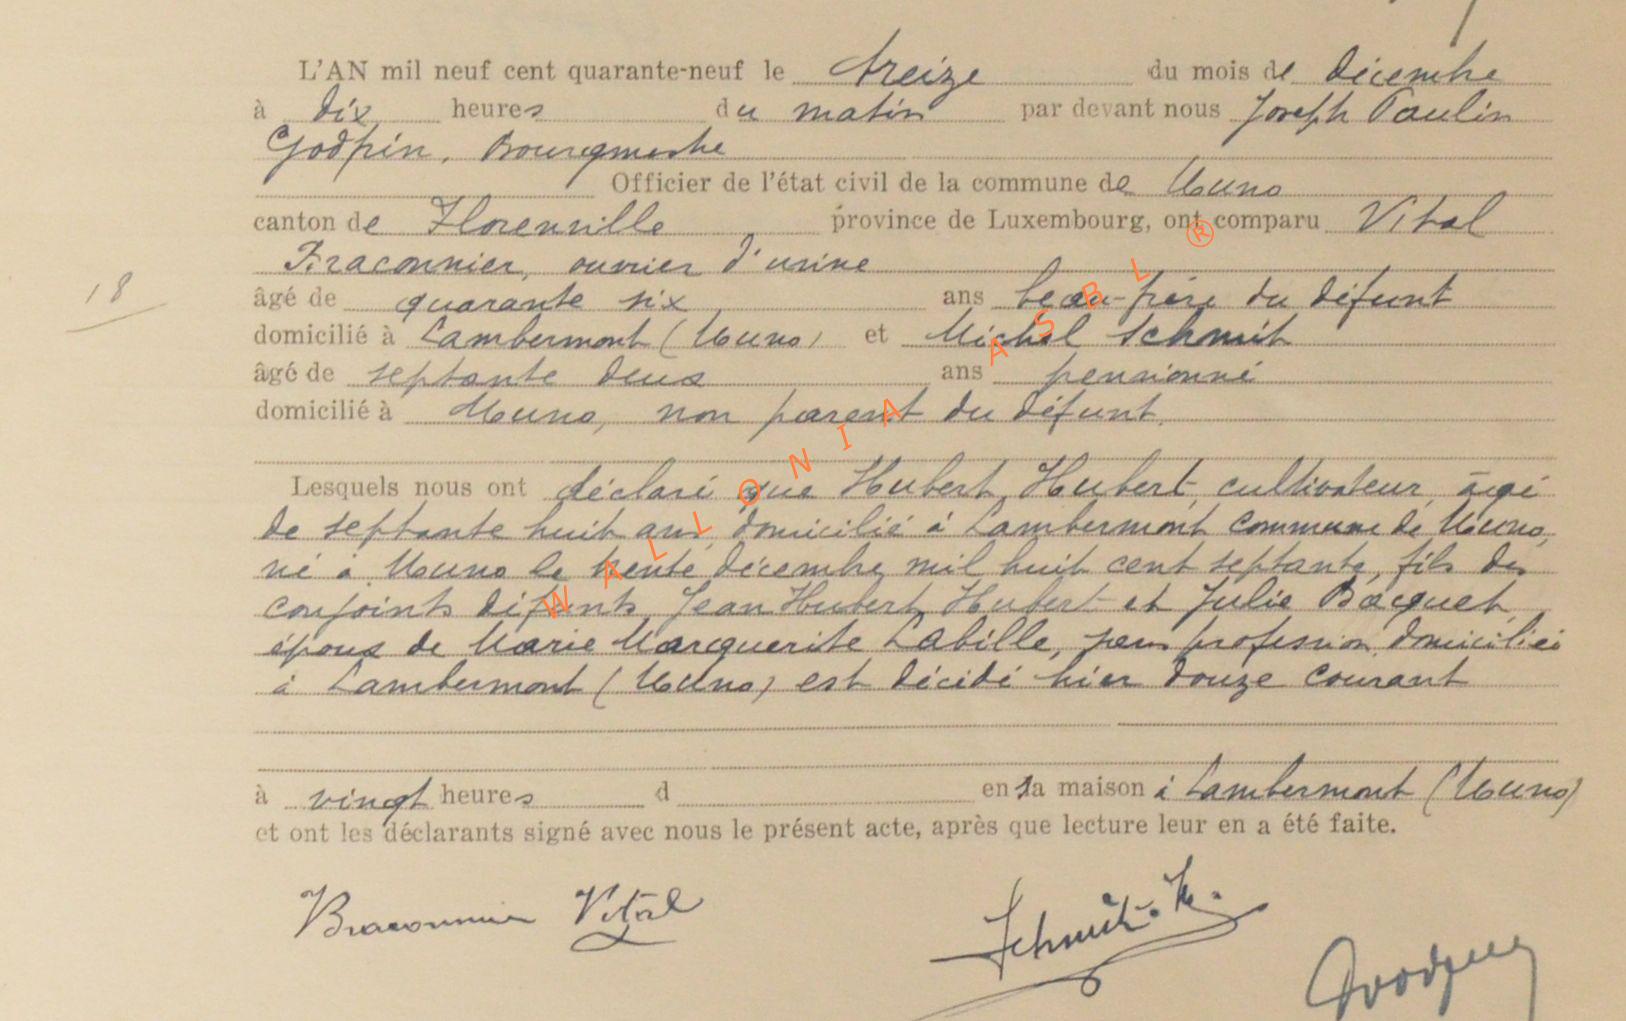 L'AN mil neuf cent quarante-neuf le treize du mois de décembre
à dix heures du matin par devant nous Joseph Paulin
Godfrin, Bourgmestre
Officier de l'état civil de la commune de Muno
canton de Florenville province de Luxembourg, ont comparu Vital
Braconnier, ouvrier d'usine
18
âgé de quarante six ans beau-frère du défunt
domicilié à Lambermont (Muno) et Michel Schmit
âgé de septante deux ans pensionné
domicilié à Muno, non parent du défunt,
Lesquels nous ont déclaré que Hubert, Hubert, cultivateur, âgé
de septante huit ans, domicilié à Lambermont commune de Muno,
né à Muno le trente décembre mil huit cent septante, fils des
conjoints défunts, Jean Hubert Hubert et Julie Bacquet,
époux de Marie Marguerite Labille, sans profession, domiciliée
à Lambermont (Muno) est décédé hier douze courant
à vingt heures d en sa maison à Lambermont (Muno)
et ont les déclarants signé avec nous le présent acte, après que lecture leur en a été faite.
Braconnier Vital
Schmit.
WALLONIA ASBL ®